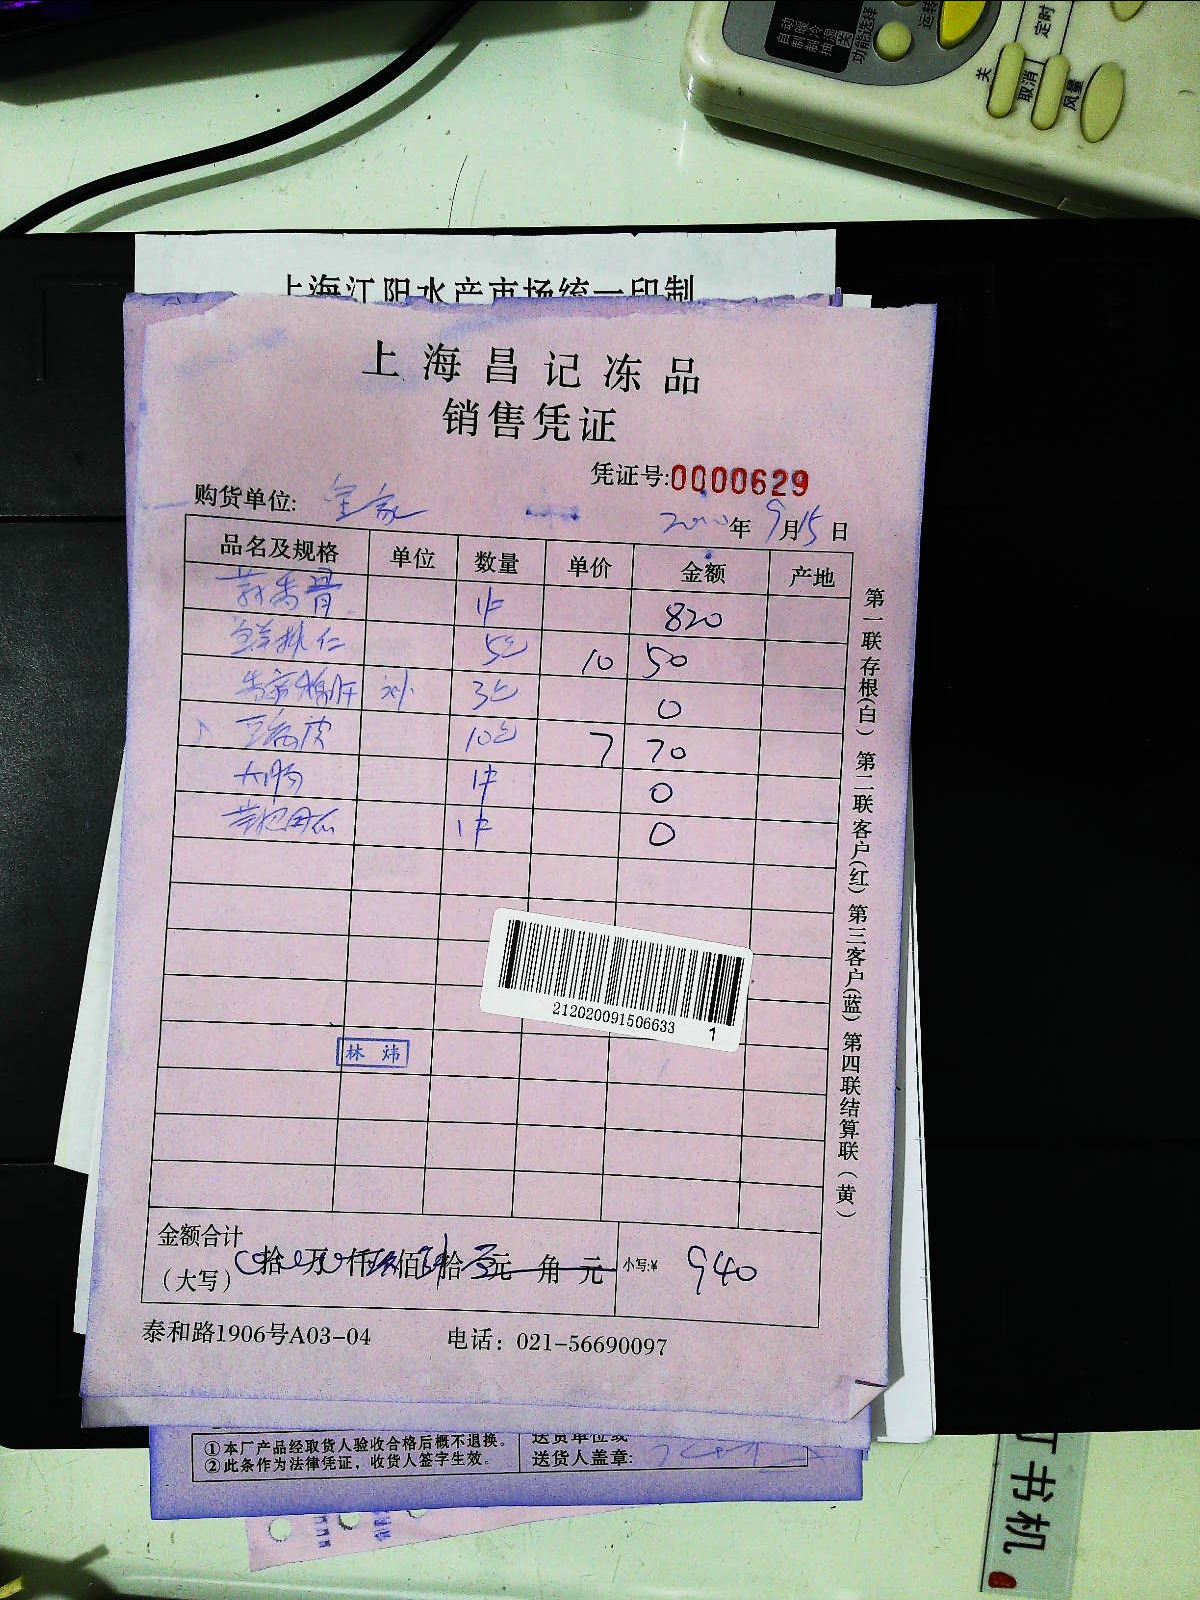 动暖冷湿
自制制抽
功能选择
运转
定时
关
取消
风量
上海江阳水产市场统一印制
上海昌记冻品
销售凭证
凭证号:0000629
购货单位:
2020年9月15日
品名及规格 单位 数量 单价 金额 产地
1件 820
5包 10 50
3包 0
10包 7 70
大肠 1件 0
1件 0
212020091506633
1
林炜
金额合计
(大写) 拾 万 仟 佰 拾 元 角 元 小写:¥ 940
泰和路1906号A03-04 电话: 021-56690097
第一联存根(白) 第二联客户(红) 第三客户(蓝) 第四联结算联(黄)
①本厂产品经取货人验收合格后概不退换。
②此条作为法律凭证，收货人签字生效。
送货单位或
送货人盖章:
订书机